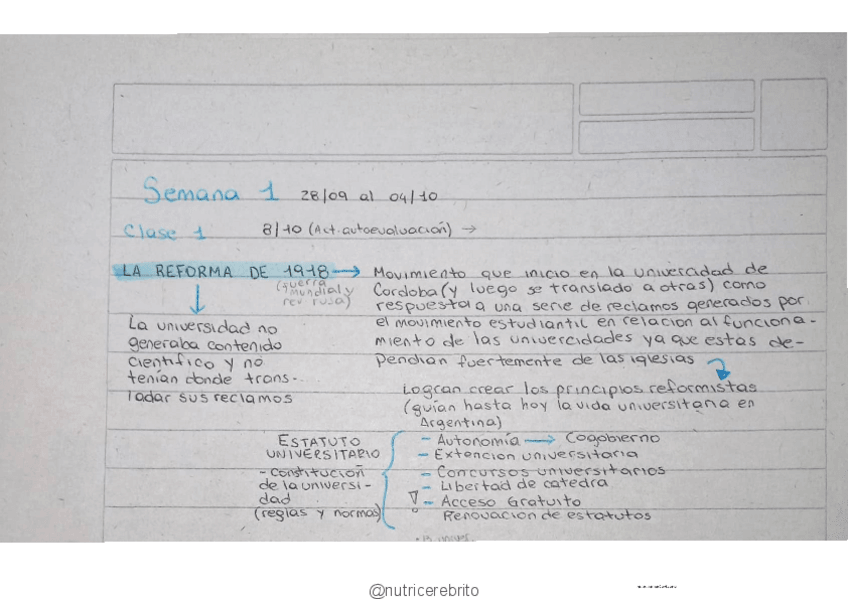 Semana 1 28/09 al 04/10
Clase 1 8/10 (Act. autoevaluación) →
LA REFORMA DE 1918 →
(guerra
mundial y
rev rusa)
Movimiento que inicio en la univercidad de
Cordoba (y luego se translado a otras) como
respuesta a una serie de reclamos generados por
el movimiento estudiantil en relacion al funciona-
miento de las univercidades ya que estas de-
pendian fuertemente de las iglesias
La universidad no
generaba contenido
cientifico y no
tenían donde trans-
ladar sus reclamos
Logran crear los principios reformistas
(guían hasta hoy la vida universitaria en
Argentina)
ESTATUTO
UNIVERSITARIO
- constitución
de la universi-
dad
(reglas y normas)
- Autonomía → Cogobierno
- Extencion universitaria
- Concursos universitarios
- Libertad de catedra
- Acceso Gratuito
Renovacion de estatutos
@nutricerebrito